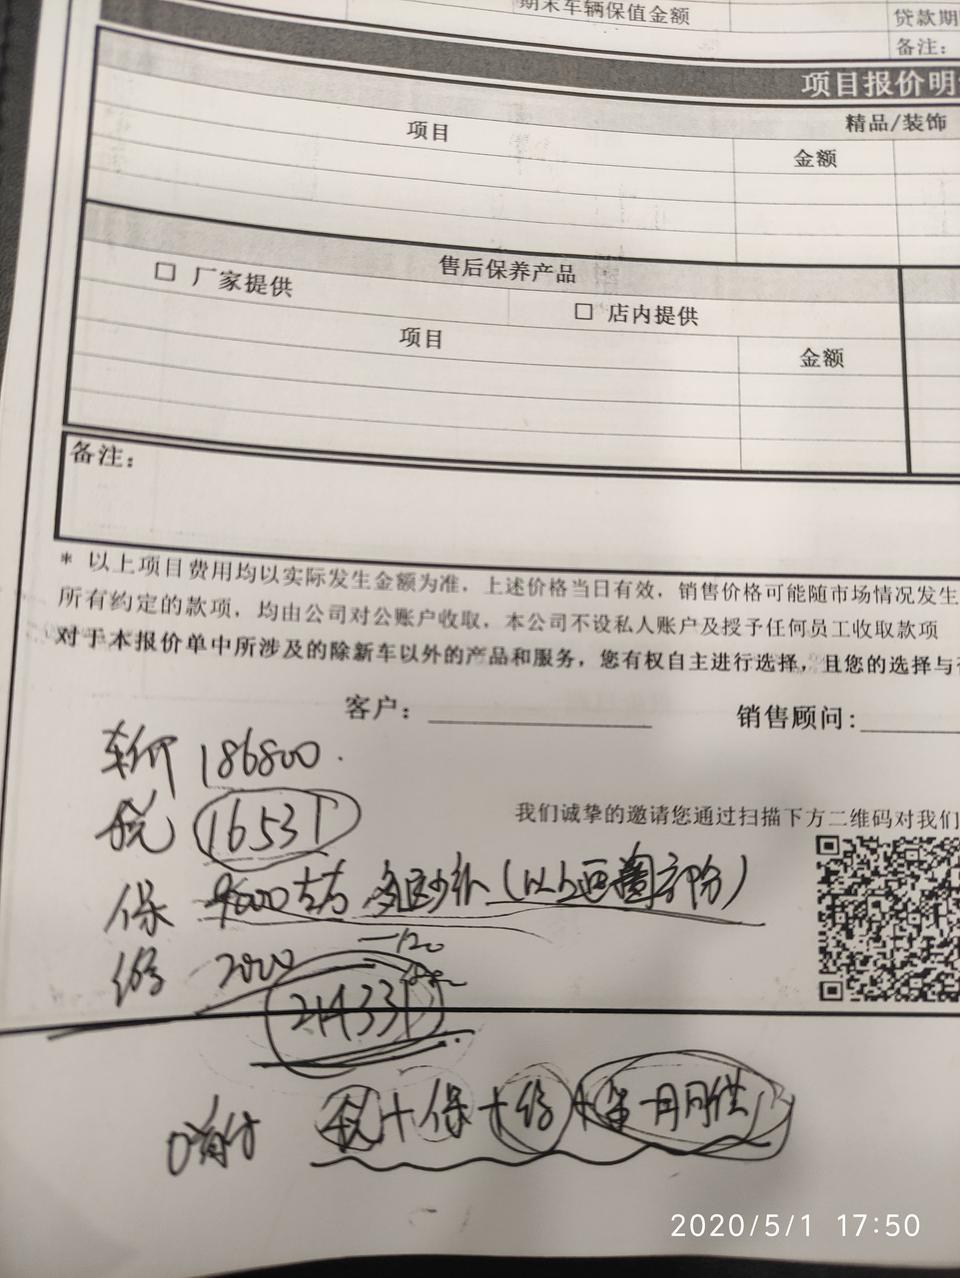 期末车辆保值金额
贷款期
备注：
项目报价明
精品/装饰
项目
金额
售后保养产品
□ 厂家提供
□ 店内提供
项目
金额
备注：
* 以上项目费用均以实际发生金额为准，上述价格当日有效，销售价格可能随市场情况发生
所有约定的款项，均由公司对公账户收取，本公司不设私人账户及授予任何员工收取款项
对于本报价单中所涉及的除新车以外的产品和服务，您有权自主进行选择，且您的选择与
客户：
销售顾问：
车价 186800
税 16531
我们诚挚的邀请您通过扫描下方二维码对我们
保 9600左右 多退少补
2020
21433
首付
+保+
月月供
2020/5/1 17:50